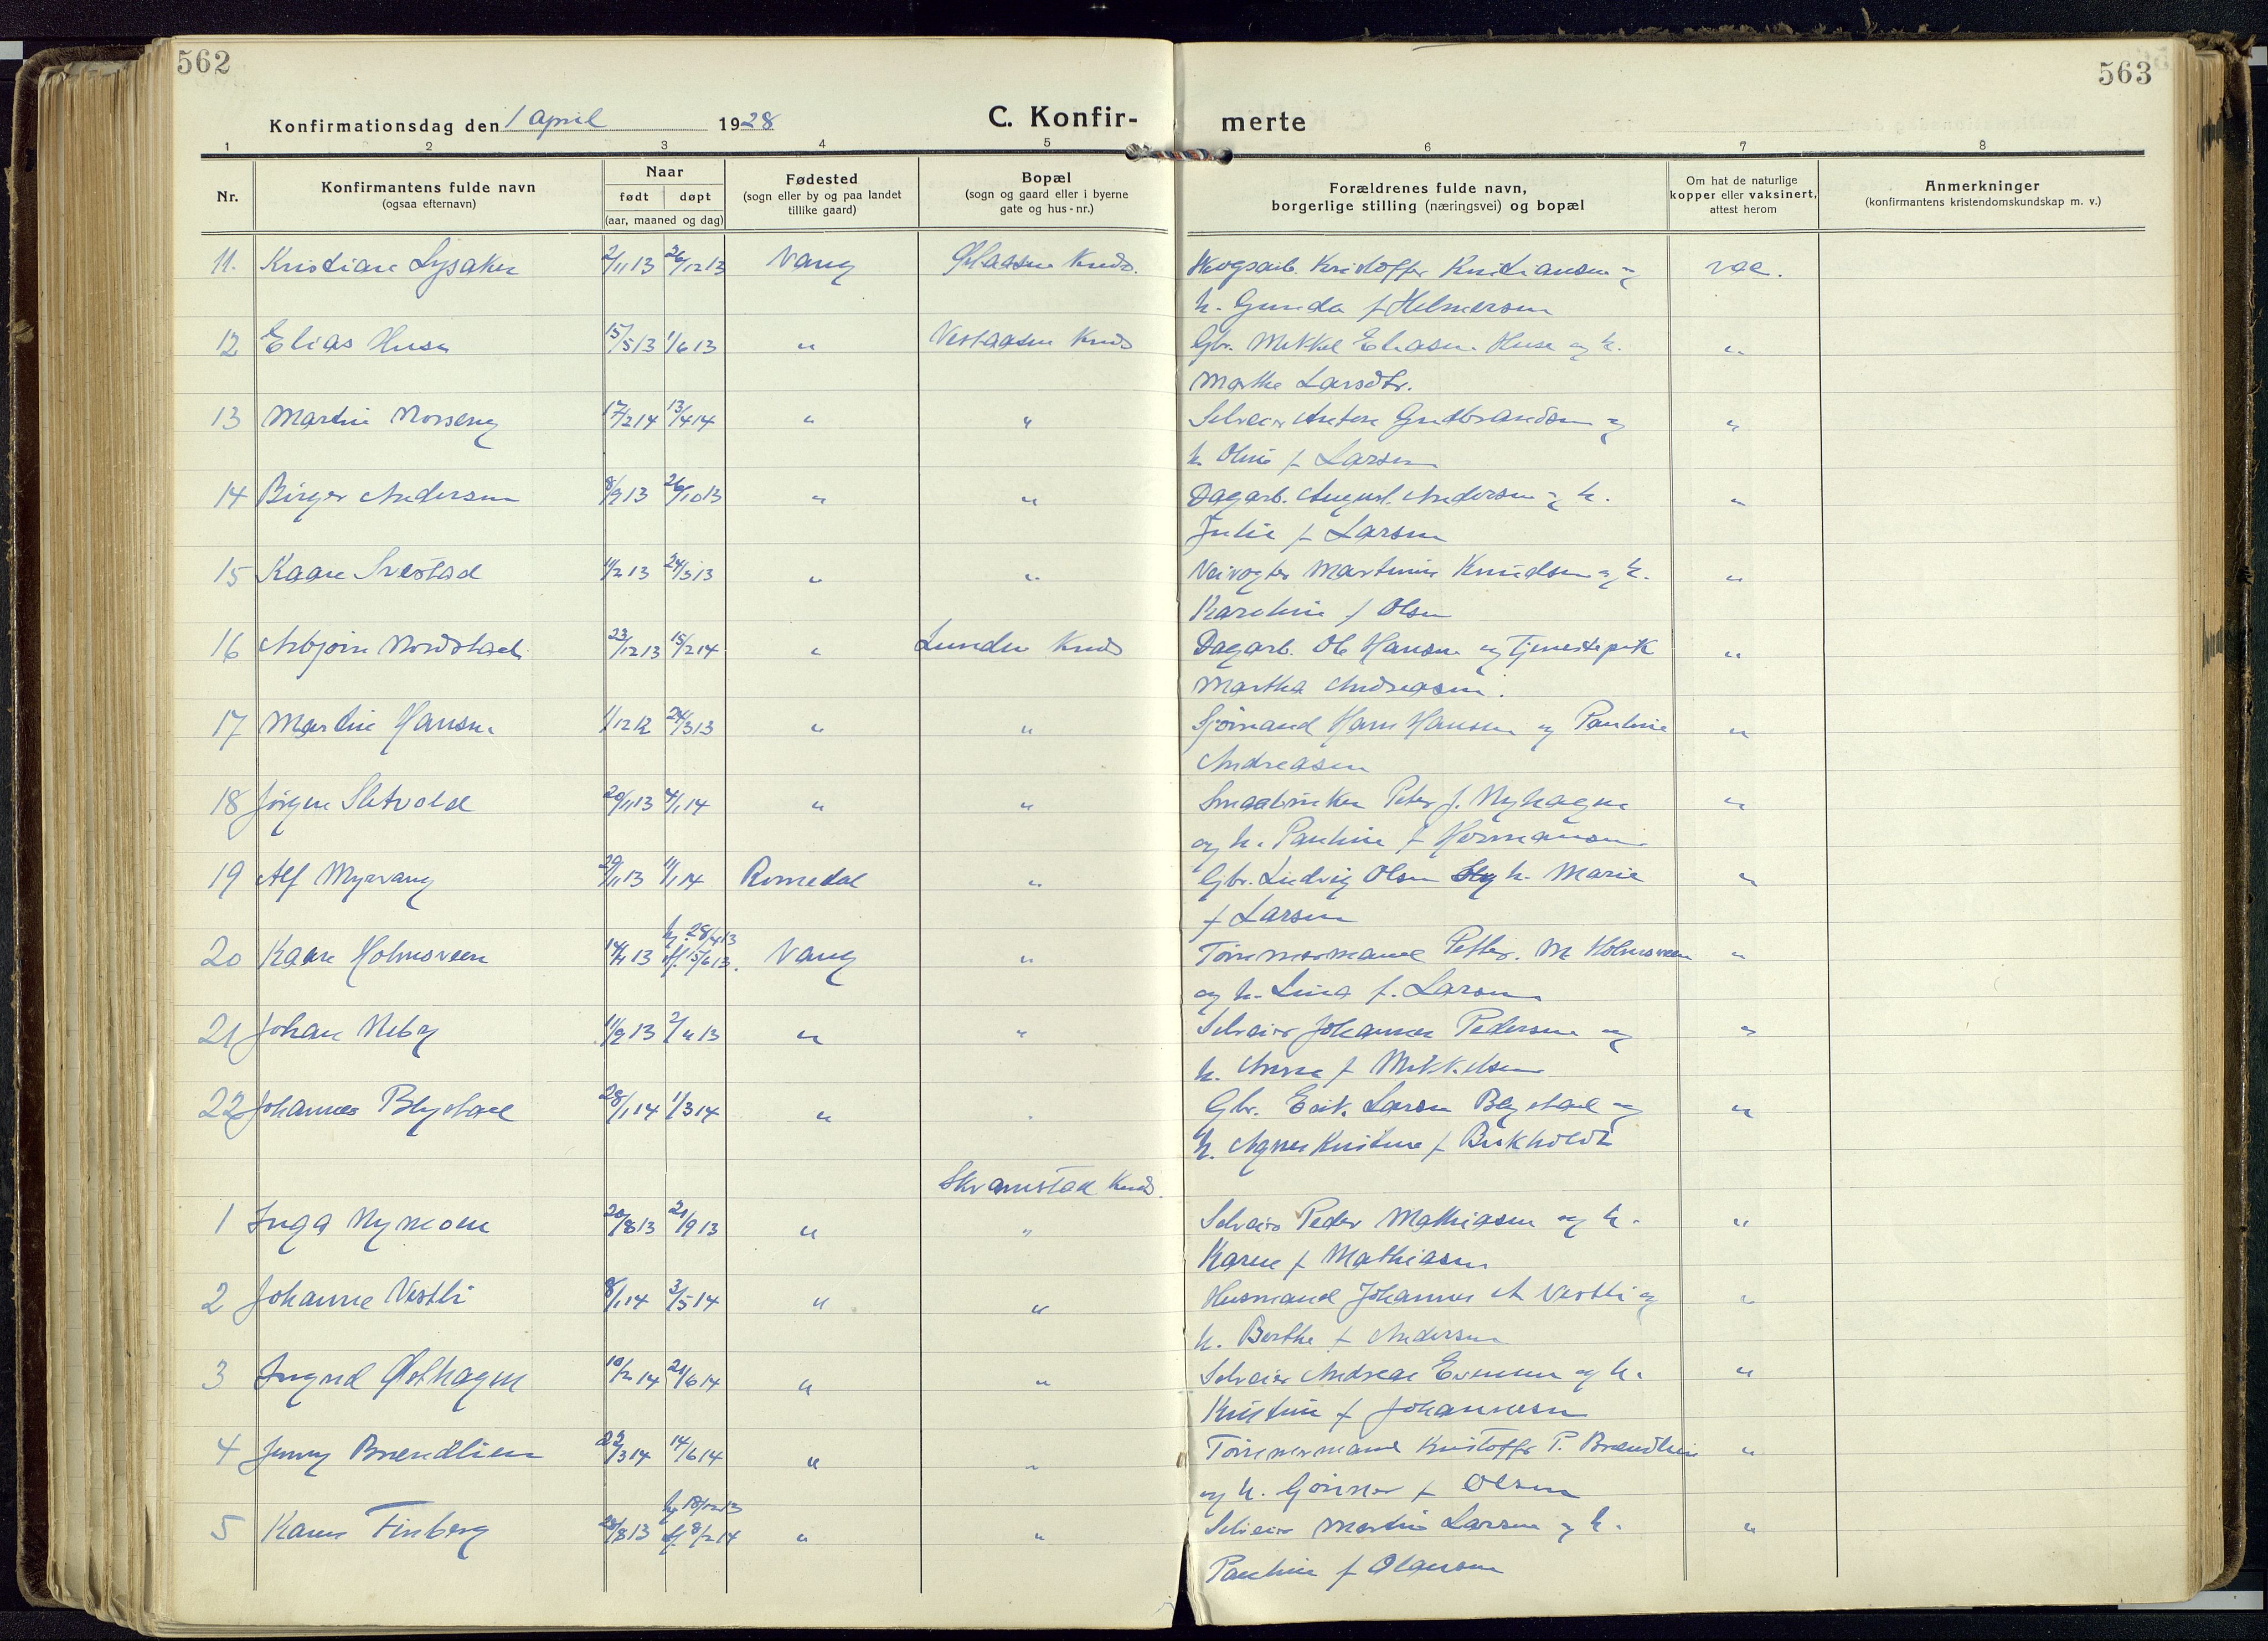 562
563
Konfirmationsdag den 1 April 1928
C. Konfir-
merte
1 2 3 4 5 6 7 8
Nr.
Konfirmantens fulde navn
(ogsaa efternavn)
Naar
født døpt
(aar, maaned og dag)
Fødested
(sogn eller by og paa landet
tillike gaard)
Bopæl
(sogn og gaard eller i byerne
gate og hus-nr.)
Forældrenes fulde navn,
borgerlige stilling (næringsvei) og bopæl
Om hat de naturlige
kopper eller vaksinert,
attest herom
Anmerkninger
(konfirmantens kristendomskundskap m. v.)
11. Kristian Lysaker 2/11 13 26/12 13 Vang Kristoffer Kristiansen og vac.
h. Gunda f Helmersen
12 Elias Huse 15/5 13 1/6 13 " Vestaasen Gbr. Mikkel Eliasen Huse og h. "
Marthe Larsdtr.
13 Martin Morseng 17/2 14 13/4 14 " " Selveier Anton Gudbrandsen og "
h. Oline f Larsen
14 Birger Andersen 8/9 13 26/10 13 " " Dagarb. August Andersen og h. "
Julie f Larsen
15 Kaare Svestad 11/2 13 24/3 13 " " Veivogter Martinius Knudsen og h. "
Karoline f Olsen
16 Asbjørn Nordstad 23/12 13 15/2 14 " Lunden Dagarb. Ole Hansen og Tjenestepik "
Martha Andreasen.
17 Martin Hansen 1/12 12 24/3 13 " " Sjømand Hans Hansen og Pauline "
Andreasen
18 Jørgen Sletvold 20/11 13 4/1 14 " " Smaabruker Peter J. Nyhagen "
og h. Pauline f Hermansen
19 Alf Myrvang 29/11 13 11/1 14 Romedal " Gbr. Ludvig Olsen og h. Marie "
f Larsen
hj. 28/4 13
20 Kaare Holmsveen 14/4 13 st. 15/6 13. Vang " Tømmermand Petter M Holmsveen "
og h. Lina f. Larsen
21 Johan Neby 11/9 13 2/11 13 " " Selveier Johannes Pedersen og "
h. Anna f Mikkelsen
22 Johannes Blystad 28/1 14 1/3 14 " " Gbr. Erik Larsen Blystad og "
h. Agnes Kristine f Birkholdt
Skramstad
1 Inga Nymoen 20/8 13 21/9 13 " " Selveier Peder Mathiasen og h. "
Karen f Mathiasen
2 Johanne Vestli 8/1 14 3/5 14 " " Husmand Johannes A Vestli og "
h. Berthe f Andersen
3 Ingrid Østhagen 10/2 14 21/6 14 " " Selveier Andreas Evensen og h. "
Kristine f Johannesen
4 Jenny Brendlien 22/3 14 14/6 14 " " Tømmermand Kristoffer P. Brendlien "
og h. f Olsen
hj. 18/12 13
5 Karen Finberg 28/8 13 st. 8/2 14 " " Selveier Martin Larsen og h. "
Pauline f Olausen